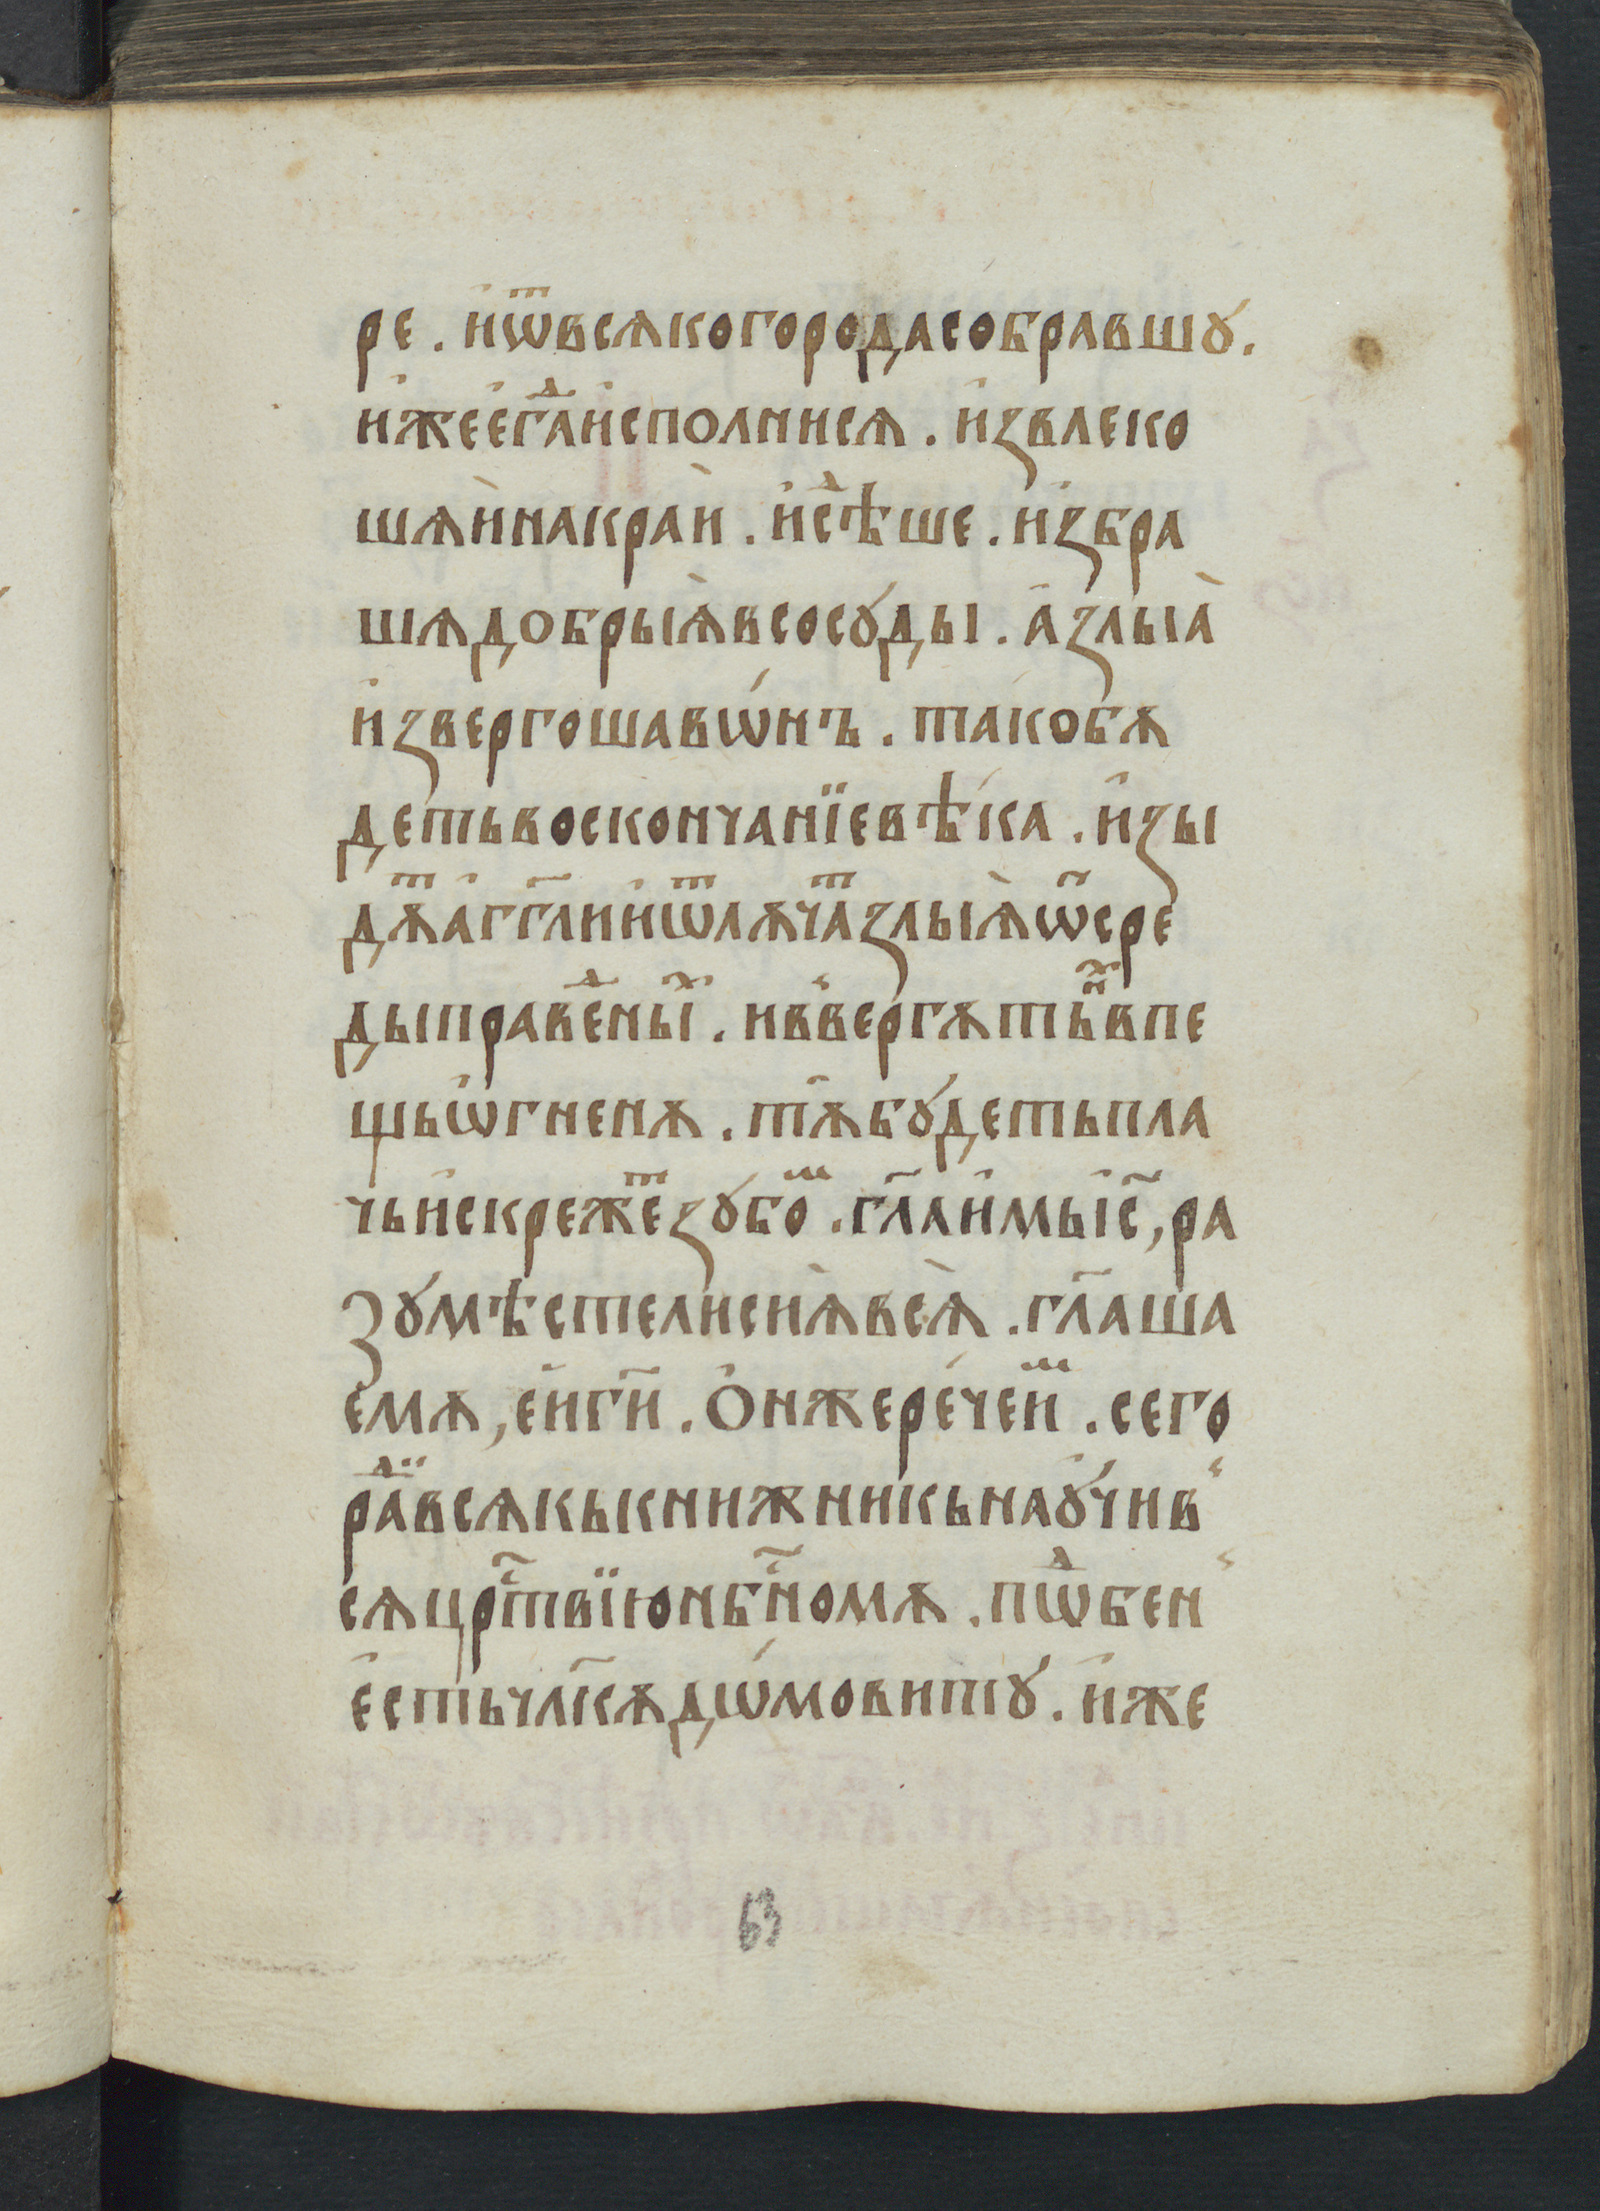 ре . и҆ѿвсѧкогородасобравшꙋ .
и҆жее҆гⷣаи҆сполнисѧ . и҆звлеко
шѧѝнакраѝ . и҆сⷣѣше . и҆збра
шѧдобрыѧ̀всосꙋды . а҆злыѧ̀
и҆звергошавѡ́нъ . та́кобѫ
детьвосконча́нїевѣ́ка . и҆зы
дѫⷮа҆гг҃лии҆ѿлѫчаⷮзлыѧ̀ѿсре
дыправеⷣныⷯ . ивве́ргѫтьиⷯвпе
щьѡ҆гненѫ . тѫ̀бꙋ́детьпла
чьи҆скрежеⷮзꙋбоⷨ . гл҃аи҆мьі҆с҃ , ра
зꙋмѣстелисиѧ̀всѧ̀ . гл҃аша
емѫ , е҆иг҃и . Ѻ҆нжере́чеиⷨ . сего
раⷣивсѧкькнижникьнаꙋ҆́чив
сѧцр҃твїюнбⷭ҇номѫ . пѡⷣбен
е҆стьчл҃кѫдѡ́мовитꙋ́ . и҆же
63